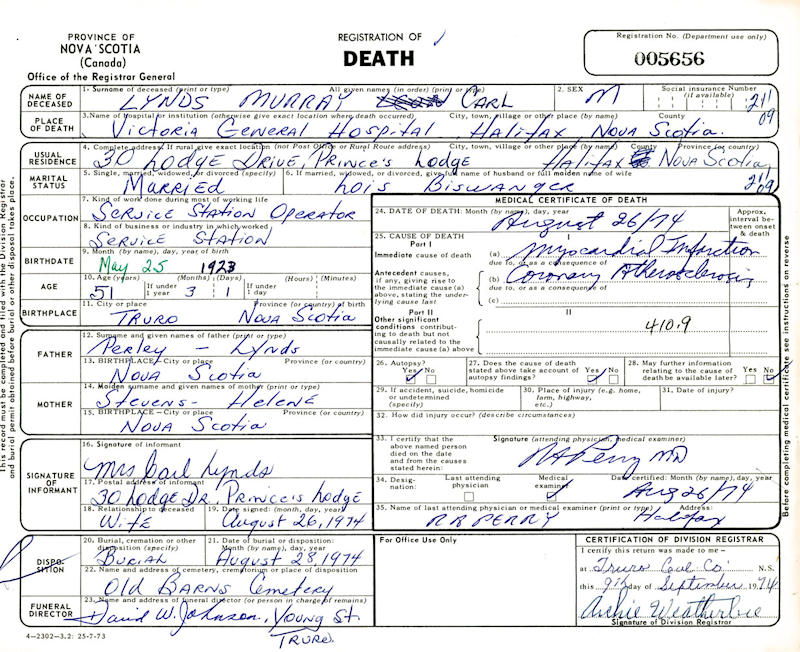 PROVINCE OF
NOVA SCOTIA
(Canada)
Office of the Registrar General
REGISTRATION OF
DEATH
Registration No. (Department use only)
005656
NAME OF DECEASED
1. Surname of deceased (print or type) All given names (in order) (print or type) 2. SEX Social insurance Number (if available)
LYNDS MURRAY CARL M 211
09
PLACE OF DEATH
3. Name of hospital or institution (otherwise give exact location where death occurred) City, town, village or other place (by name) County
Victoria General Hospital, Halifax Nova Scotia.
USUAL RESIDENCE
4. Complete address. If rural give exact location (not Post Office or Rural Route address) City, town, village or other place (by name) County Province (or country)
30 Lodge Drive, Prince's Lodge Halifax Nova Scotia
MARITAL STATUS
5. Single, married, widowed, or divorced (specify) 6. If married, widowed, or divorced, give full name of husband or full maiden name of wife
Married Lois Biswanger 2109
OCCUPATION
7. Kind of work done during most of working life
Service Station Operator
8. Kind of business or industry in which worked
Service Station
BIRTHDATE
9. Month (by name), day, year of birth
May 25 1923
AGE
10. Age (years) If under 1 year (Months) (Days) If under 1 day (Hours) (Minutes)
51 3 1
BIRTHPLACE
11. City or place Province (or country) of birth
Truro Nova Scotia
FATHER
12. Surname and given names of father (print or type)
Perley - Lynds
13. BIRTHPLACE—City or place Province (or country)
Nova Scotia
MOTHER
14. Maiden surname and given names of mother (print or type)
Stevens - Helene
15. BIRTHPLACE—City or place Province (or country)
Nova Scotia
SIGNATURE OF INFORMANT
16. Signature of informant
Mrs Carl Lynds
17. Postal address of informant
30 Lodge Dr. Prince's Lodge
18. Relationship to deceased 19. Date signed: (month, day, year)
Wife August 26, 1974
DISPOSITION
20. Burial, cremation or other disposition (specify) 21. Date of burial or disposition: Month (by name), day, year
Burial August 28, 1974
22. Name and address of cemetery, crematorium or place of disposition
Old Barns Cemetery
FUNERAL DIRECTOR
23. Name and address of funeral director (or person in charge of remains)
David W. Johnson, Young St.
Truro.
4—2302—3.2: 25-7-73
MEDICAL CERTIFICATE OF DEATH
24. DATE OF DEATH: Month (by name), day, year
August 26/74
Approx. interval between onset & death
25. CAUSE OF DEATH
Part I I
Immediate cause of death (a) Myocardial Infarction
due to, or as a consequence of
Antecedent causes, if any, giving rise to the immediate cause (a) above, stating the underlying cause last
(b) Coronary Atherosclerosis
due to, or as a consequence of
(c)
Part II II
Other significant conditions contributing to death but not causally related to the immediate cause (a) above
410.9
26. Autopsy? Yes No
27. Does the cause of death stated above take account of autopsy findings? Yes No
28. May further information relating to the cause of death be available later? Yes No
29. If accident, suicide, homicide or undetermined (specify)
30. Place of injury (e.g. home, farm, highway, etc.)
31. Date of injury?
32. How did injury occur? (describe circumstances)
33. I certify that the above named person died on the date and from the causes stated herein:
Signature (attending physician, medical examiner)
RA Perry MD
34. Designation: Last attending physician Medical examiner Date certified: Month (by name), day, year
Aug 26/74
35. Name of last attending physician or medical examiner (print or type) Address:
PERRY Halifax
For Office Use Only
CERTIFICATION OF DIVISION REGISTRAR
I certify this return was made to me —
at Truro Col. Co. N.S.
this 9th day of September 1974
Archie Weatherbie
Signature of Division Registrar
This record must be completed and filed with the Division Registrar and burial permit obtained before burial or other disposal takes place.
Before completing medical certificate see instructions on reverse